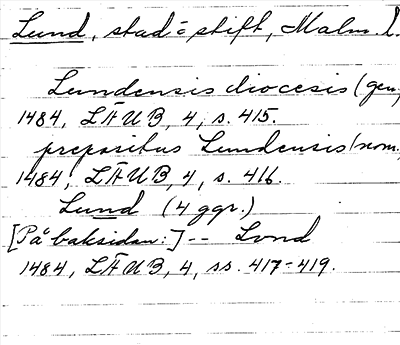 Lund, stad o stift, Malm. l.
Lundensis diocesis (gen.
1484, LÄUB, 4, s. 415.
prepositus Lundensis (nom.
1484, LÄUB, 4, s. 416.
Lund (4 ggr.)
[På baksidan:] -- Lvnd
1484, LÄUB, 4, ss. 417-419.